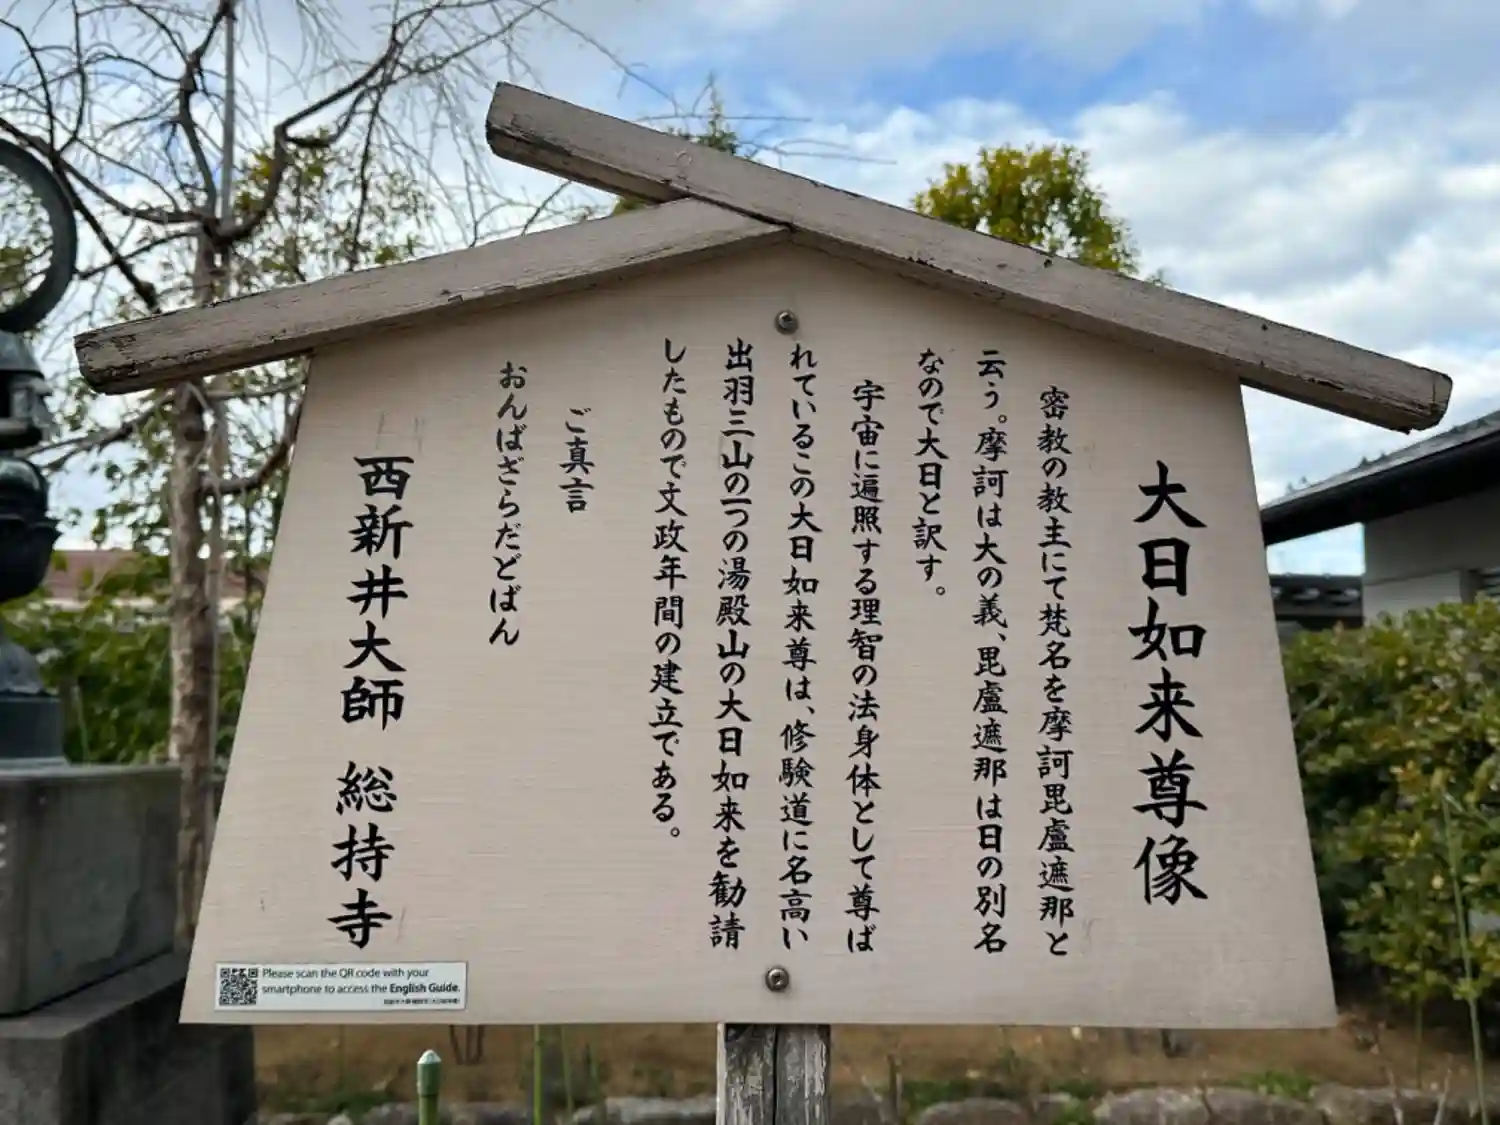 大日如来尊像
密教の教主にて梵名を摩訶毘盧遮那と
云う。摩訶は大の義、毘盧遮那は日の別名
なので大日と訳す。
宇宙に遍照する理智の法身体として尊ば
れているこの大日如来尊は、修験道に名高い
出羽三山の一つの湯殿山の大日如来を勧請
したもので文政年間の建立である。
ご真言
おんばざらだどばん
西新井大師 総持寺
Please scan the QR code with your
smartphone to access the English Guide.